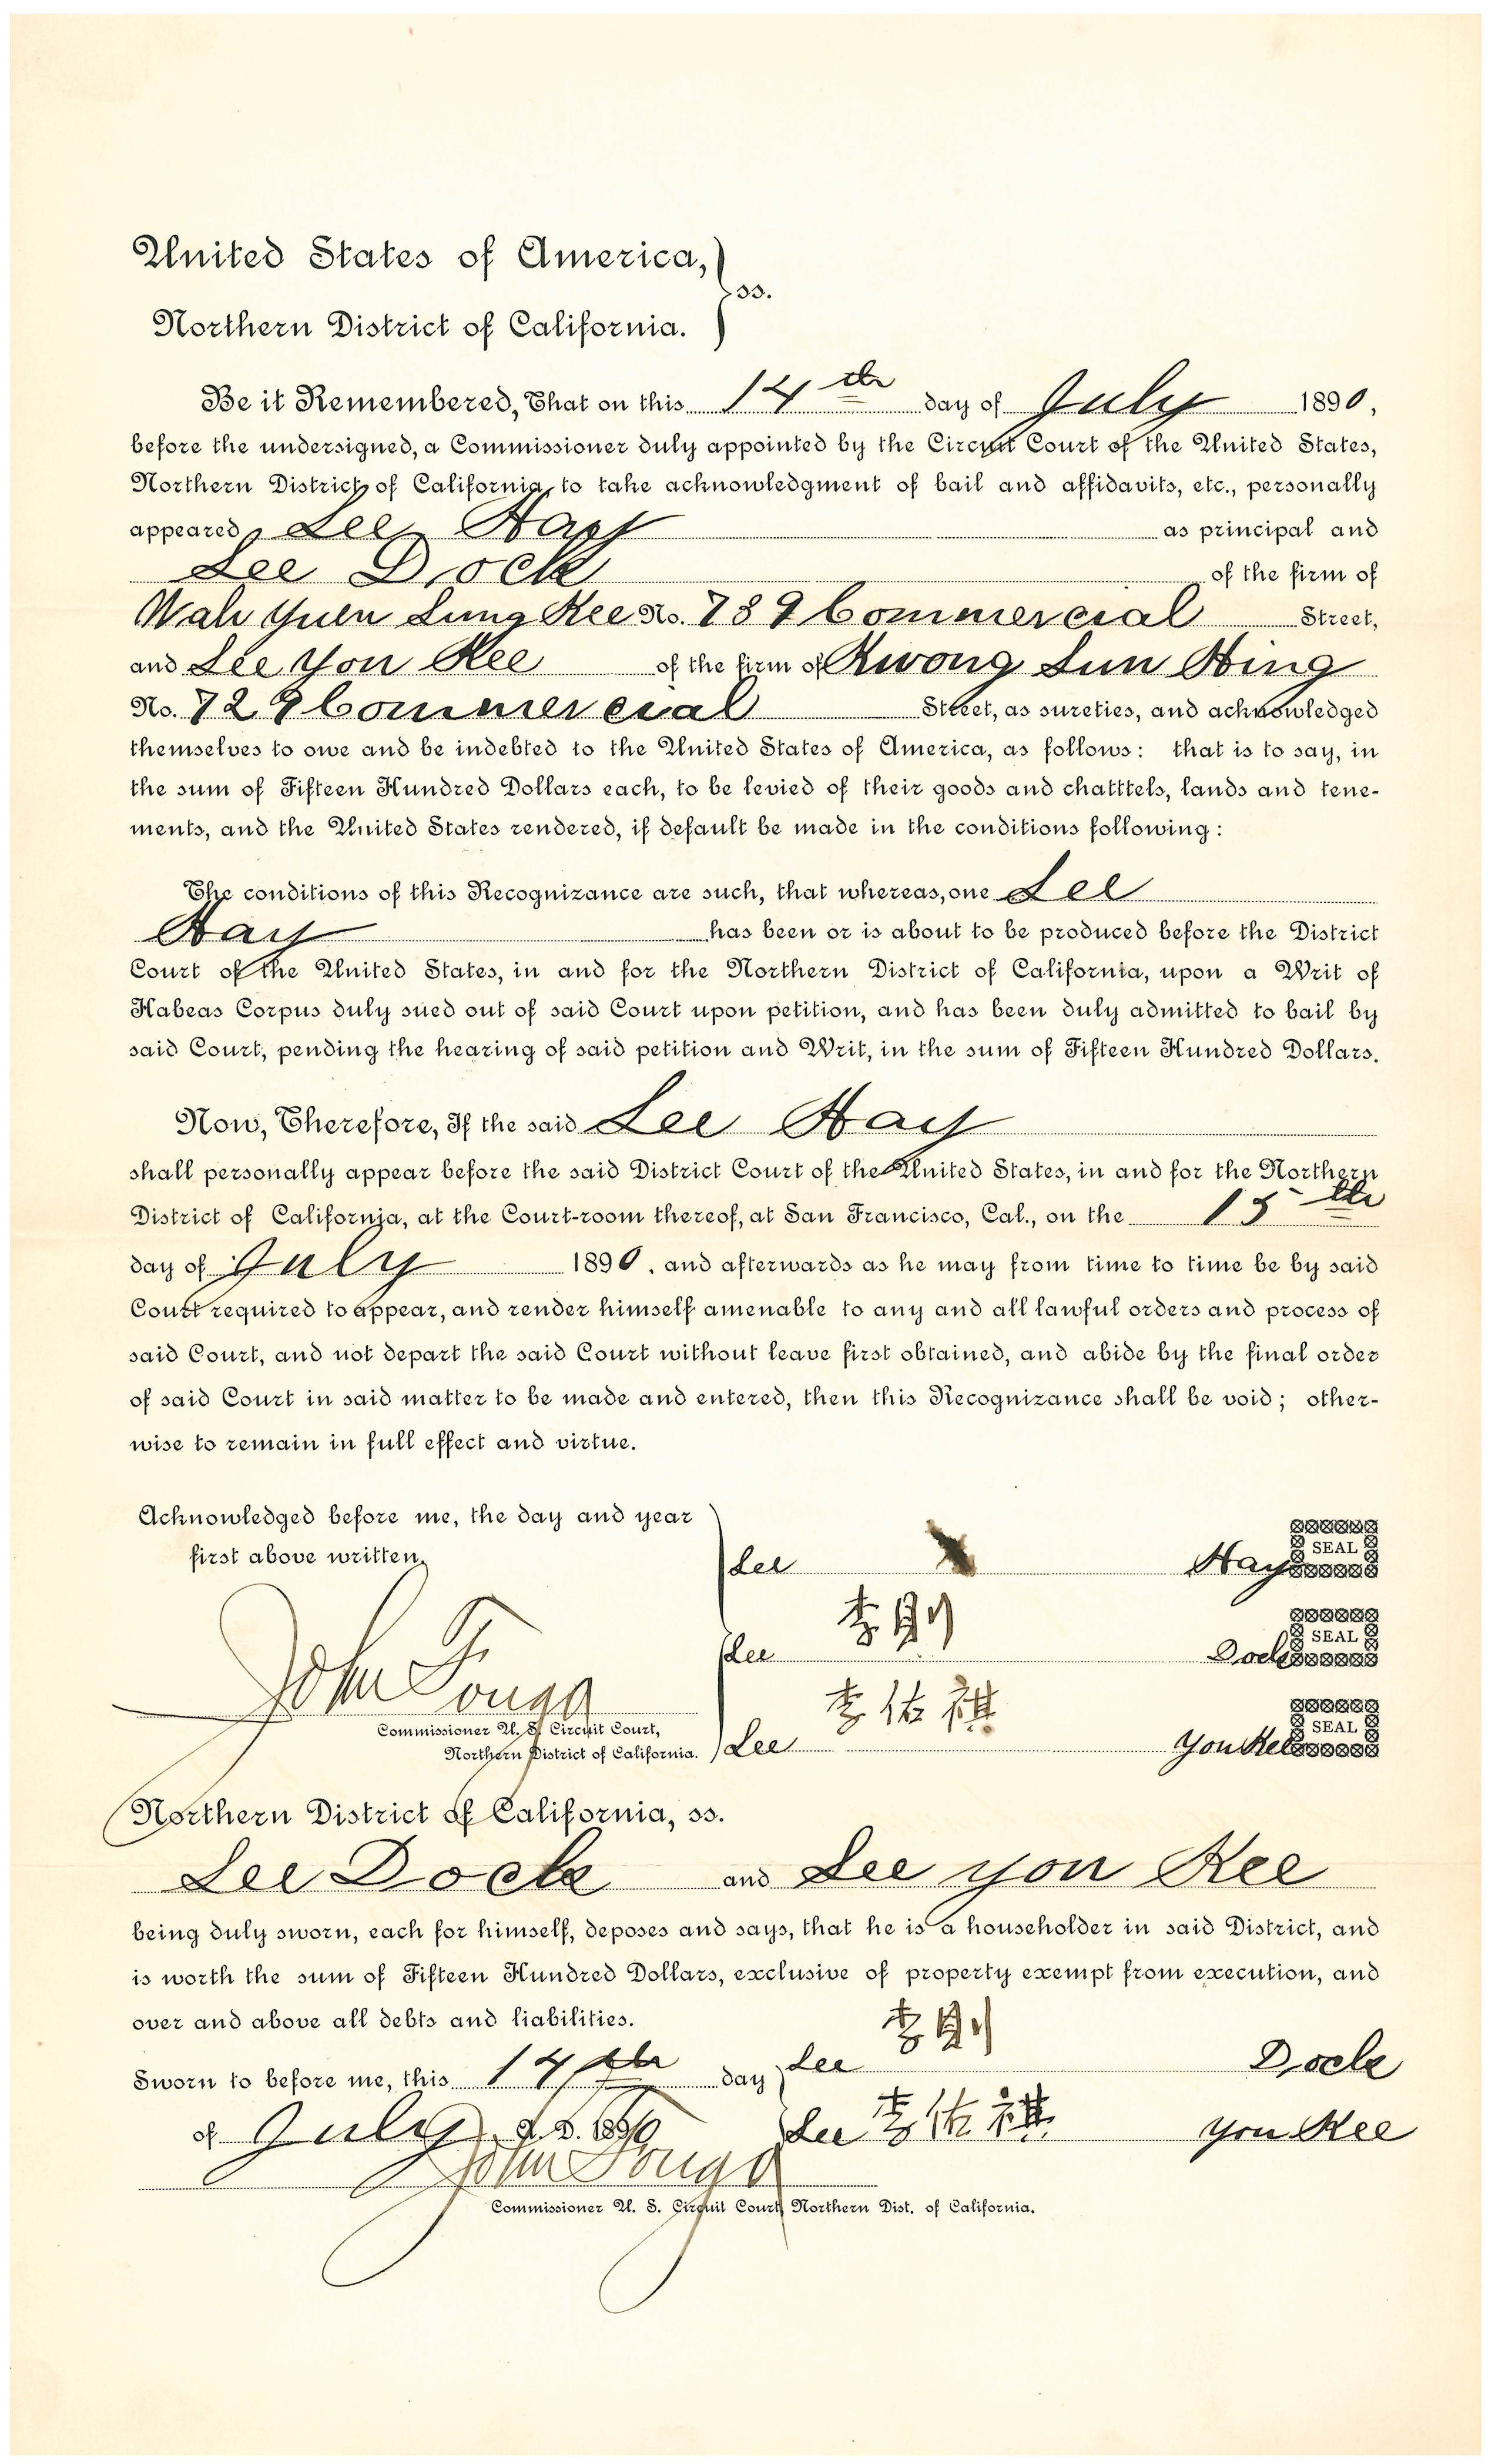 United States of America,
ss.
Northern District of California.
Be it Remembered, That on this 14th day of July 1890,
before the undersigned, a Commissioner duly appointed by the Circuit Court of the United States,
Northern District of California, to take acknowledgment of bail and affidavits, etc., personally
appeared, Lee Hay as principal and
Lee Dock of the firm of
Wah Yuen Lung Kee No. 739 Commercial Street,
and Lee You Kee of the firm of Kwong Sun Hing
No. 729 Commercial Street, as sureties, and acknowledged
themselves to owe and be indebted to the United States of America, as follows: that is to say, in
the sum of Fifteen Hundred Dollars each, to be levied of their goods and chatttels, lands and tene-
ments, and the United States rendered, if default be made in the conditions following:
The conditions of this Recognizance are such, that whereas, one Lee
Hay has been or is about to be produced before the District
Court of the United States, in and for the Northern District of California, upon a Writ of
Habeas Corpus duly sued out of said Court upon petition, and has been duly admitted to bail by
said Court, pending the hearing of said petition and Writ, in the sum of Fifteen Hundred Dollars.
Now, Therefore, If the said Lee Hay
shall personally appear before the said District Court of the United States, in and for the Northern
District of California, at the Court-room thereof, at San Francisco, Cal., on the 15th
day of July 1890, and afterwards as he may from time to time be by said
Court required to appear, and render himself amenable to any and all lawful orders and process of
said Court, and not depart the said Court without leave first obtained, and abide by the final order
of said Court in said matter to be made and entered, then this Recognizance shall be void; other-
wise to remain in full effect and virtue.
Acknowledged before me, the day and year
first above written.
Lee Hay SEAL
李
Lee Dock SEAL
John Fouga
李佑祺
Commissioner U. S. Circuit Court,
Northern District of California.
Lee You Kee SEAL
Northern District of California, ss.
Lee Dock and Lee You Kee
being duly sworn, each for himself, deposes and says, that he is a householder in said District, and
is worth the sum of Fifteen Hundred Dollars, exclusive of property exempt from execution, and
over and above all debts and liabilities.
李
Sworn to before me, this 14th day Lee Dock
of July A. D. 1890 Lee 李佑祺 You Kee
John Fouga
Commissioner U. S. Circuit Court, Northern Dist. of California.